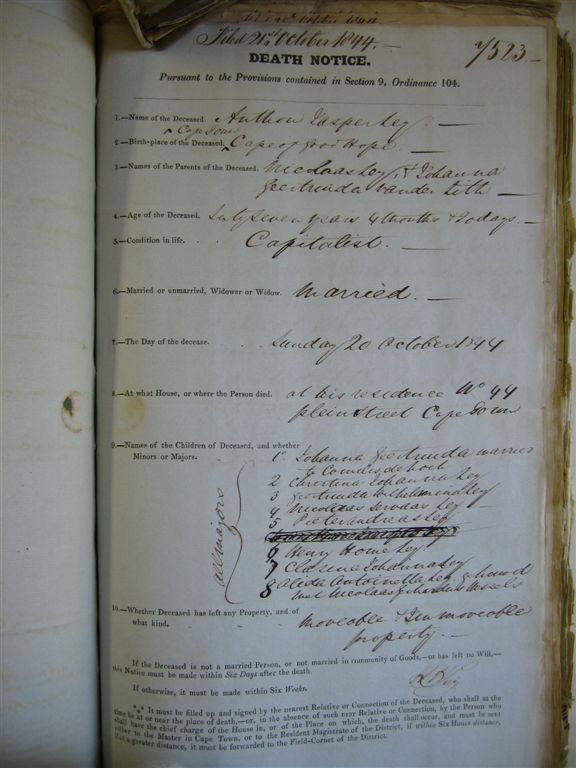 Filed 21st October 1844.—
7523.—
DEATH NOTICE.
Pursuant to the Provisions contained in Section 9, Ordinance 104.
1.—Name of the Deceased Anthon Jasper Ley. —
Cape Town
2.—Birth-place of the Deceased, Cape of Good Hope —
3.—Names of the Parents of the Deceased. Nicolaas Ley, & Johanna
Geertruida van der Lith —
4.—Age of the Deceased. Sixty seven years 4 months & 20 days. —
5.—Condition in life. Capitalist. —
6.—Married or unmarried, Widower or Widow. Married. —
7.—The Day of the decease. Sunday 20 October 1844
8.—At what House, or where the Person died. at his residence No 44
plein Street Cape Town
9.—Names of the Children of Deceased, and whether
Minors or Majors.
all majors
1 Johanna Geertruida married
to de Kock
2 Christina Johanna Ley
3 Geertruida Wilhelmina Ley
4 Nicolaas Servaas Ley
5 Pieter Andreas Ley
6 Henry Home Ley
7 Clasina Johanna Ley
8 Alida Antoinetta Ley gehuwd
met Nicolaas Gerhardus Wessels
10.—Whether Deceased has left any Property, and of
what kind. moveable & Immoveable
property. —
If the Deceased is not a married Person, or not married in community of Goods,—or has left no Will,—
this Notice must be made within Six Days after the death.
If otherwise, it must be made within Six Weeks.
Ley
*** It must be filled up and signed by the nearest Relative or Connection of the Deceased, who shall at the
time be at or near the place of death,—or, in the absence of such near Relative or Connection, by the Person who
shall have the chief charge of the House in, or of the Place on which, the death shall occur, and must be sent
either to the Master in Cape Town, or to the Resident Magistrate of the District, if within Six Hours distance,
if at a greater distance, it must be forwarded to the Field-Cornet of the District.